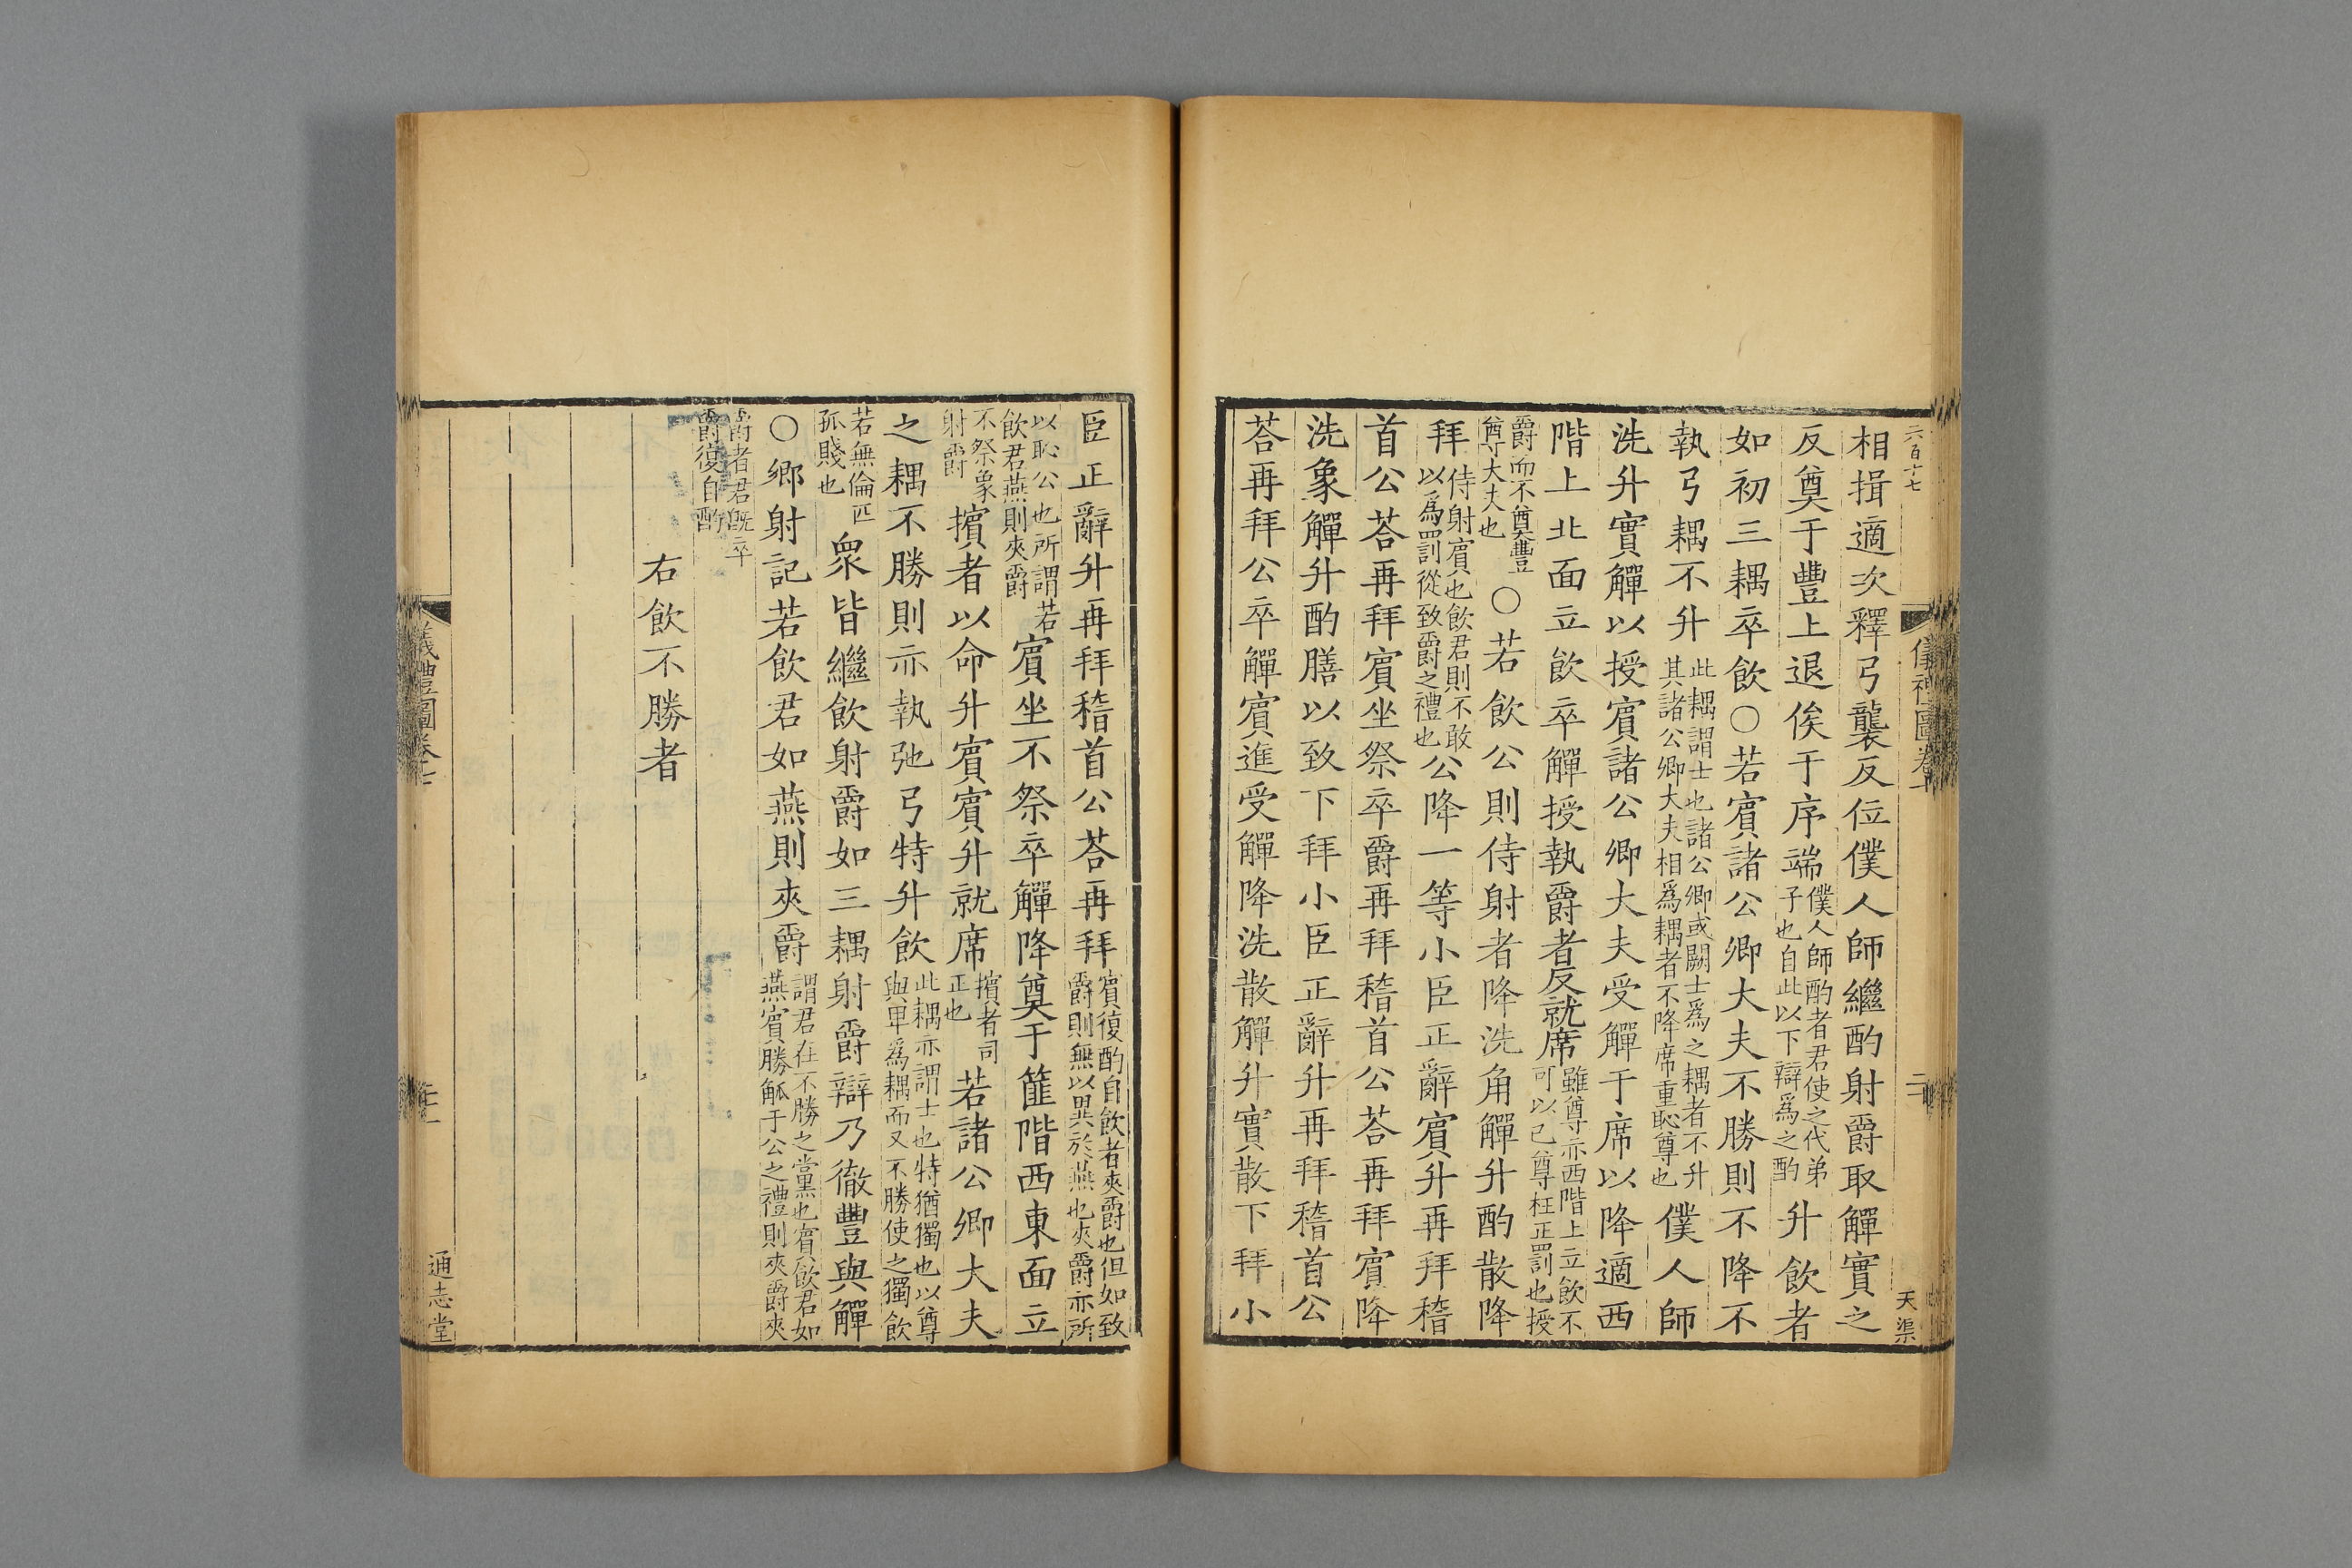 六百十七
儀禮圖卷七
天渠
相揖適次釋弓襲反位僕人師繼酌射爵取觶實之
反奠于豐上退俟于序端僕人師酌者君使之代弟子也自此以下辯爲之酌升飲者
如初三耦卒飲○若賓諸公卿大夫不勝則不降不
執弓耦不升此耦謂士也諸公卿或闕士爲之耦者不升其諸公卿大夫相爲耦者不降席重恥尊也僕人師
洗升實觶以授賓諸公卿大夫受觶于席以降適西
階上北面立飲卒觶授執爵者反就席雖尊亦西階上立飲不可以已尊枉正罰也授
爵而不奠豐尊大夫也○若飲公則侍射者降洗角觶升酌散降
拜侍射賓也飲君則不敢以爲罰從致爵之禮也公降一等小臣正辭賓升再拜稽
首公荅再拜賓坐祭卒爵再拜稽首公荅再拜賓降
洗象觶升酌膳以致下拜小臣正辭升再拜稽首公
荅再拜公卒觶賓進受觶降洗散觶升實散下拜小
臣正辭升再拜稽首公荅再拜賓復酌自飲者夾爵也但如致爵則無以異於燕也夾爵亦所
以恥公也所謂若飲君燕則夾爵賓坐不祭卒觶降奠于篚階西東面立
不祭象射爵擯者以命升賓賓升就席擯者司正也若諸公卿大夫
之耦不勝則亦執弛弓特升飲此耦亦謂士也特猶獨也以尊與卑爲耦而又不勝使之獨飲
若無倫匹孤賤也衆皆繼飲射爵如三耦射爵辯乃徹豐與觶
○鄉射記若飲君如燕則夾爵謂君在不勝之黨也賓飲君如燕賓勝觚于公之禮則夾爵夾
爵者君既卒爵復自酌
右飲不勝者
儀禮圖卷七
通志堂